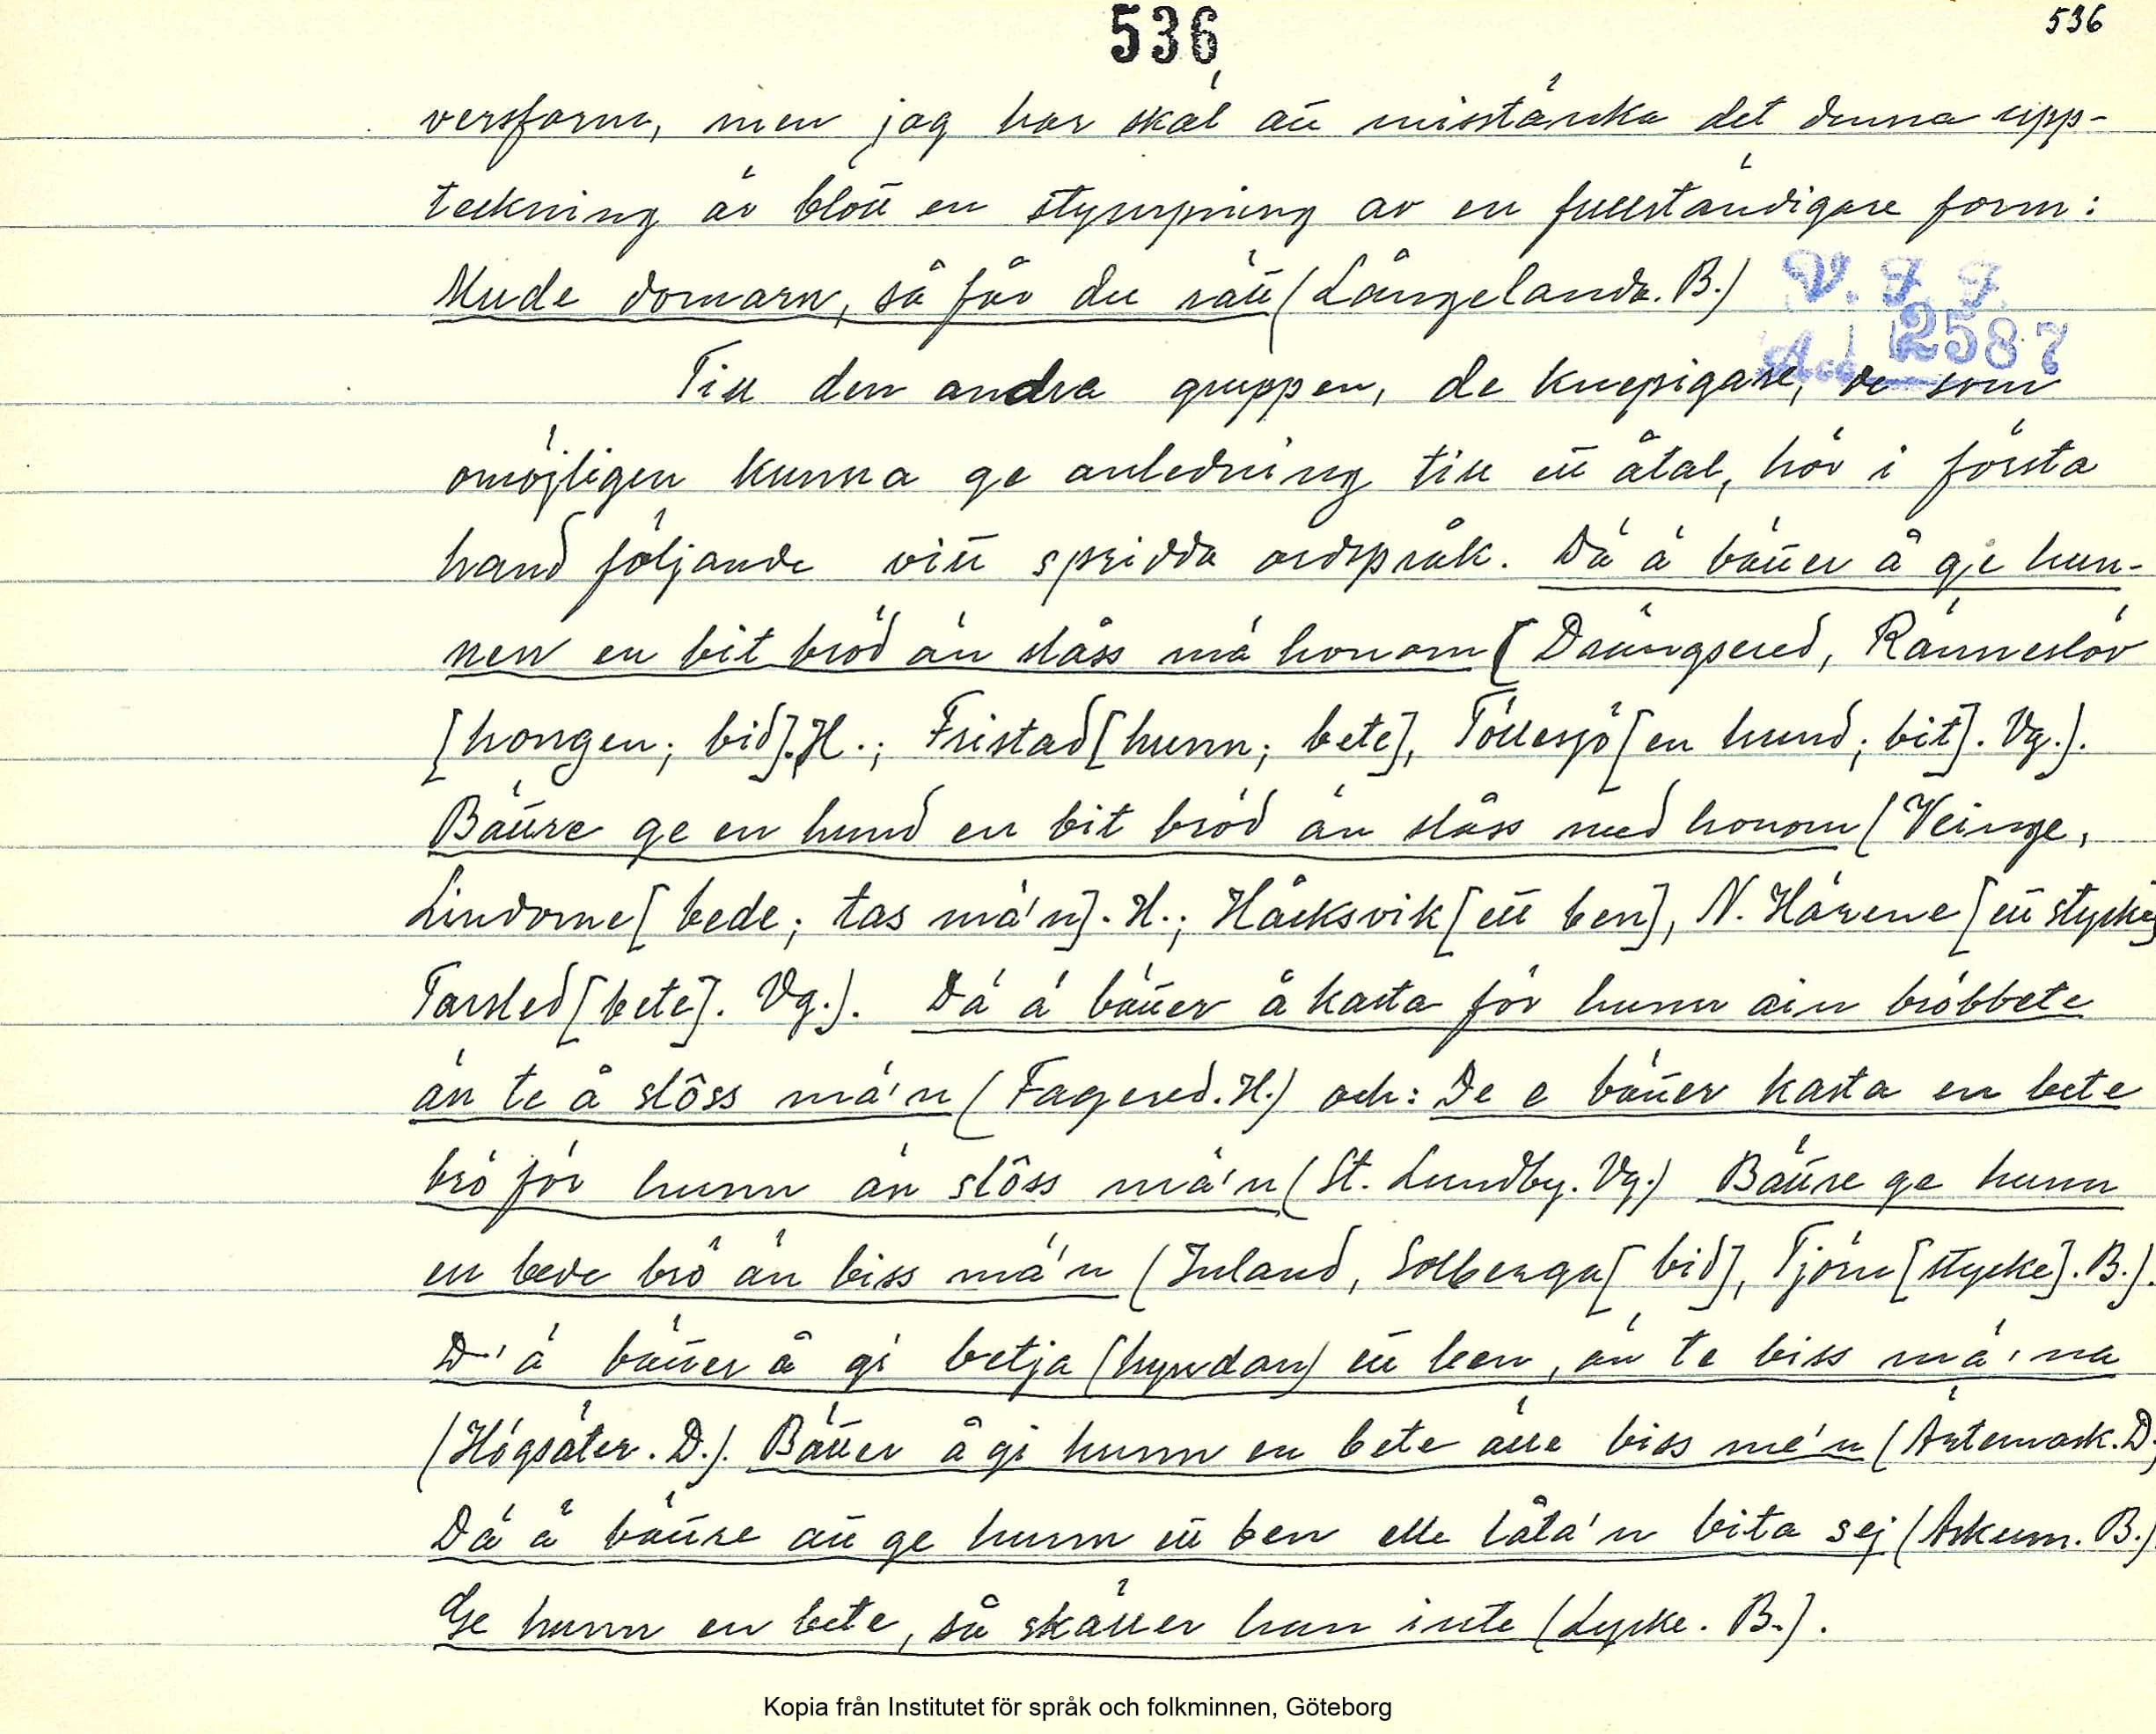 536
536
versform, men jag har skäl att misstänka det denna upp-
teckning är blott en stympning av en fullständigare form:
Mude domarn, så får du rätt (Långelanda. B.)
V. F. F.
Acc 2587
Till den andra gruppen, de knepigare, de som
omöjligen kunna ge anledning till ett åtal, hör i första
hand följande vitt spridda ordspråk. Dä ä bätter å gje hun-
nen en bit bröd än slåss mä honom (Drängsered, Ränneslöv
[hongen; bid]. H.; Fristad [hunn; bete], Töllesjö [en hund; bit]. Vg.).
Bättre ge en hund en bit bröd än slåss med honom (Veinge,
Lindome [bede; tas mä'n]. H.; Håcksvik [ett ben], N. Härene [ett stycke]
Tarsled [bete]. Vg.). Dä ä bätter å kasta för hunn ain bröbbete
än te å slôss mä'n (Fagered. H.) och: De e bätter kasta en bete
brö för hunn än slôss mä'n (St. Lundby. Vg.) Bättre ge hunn
en bede brö än biss mä'n (Inland, Solberga [bid], Tjörn [stycke]. B.).
D'ä bätter å gi betja (hyndan) ett been, än te biss mä'na
(Högsäter. D.). Bätter å gi hunn en bete älle biss me'n (Ärtemark. D.)
Dä ä bättre att ge hunn ett ben elle låta'n bita sej (Askum. B.)
Ge hunn en bete, så skäller han inte (Lycke. B.).
Kopia från Institutet för språk och folkminnen, Göteborg